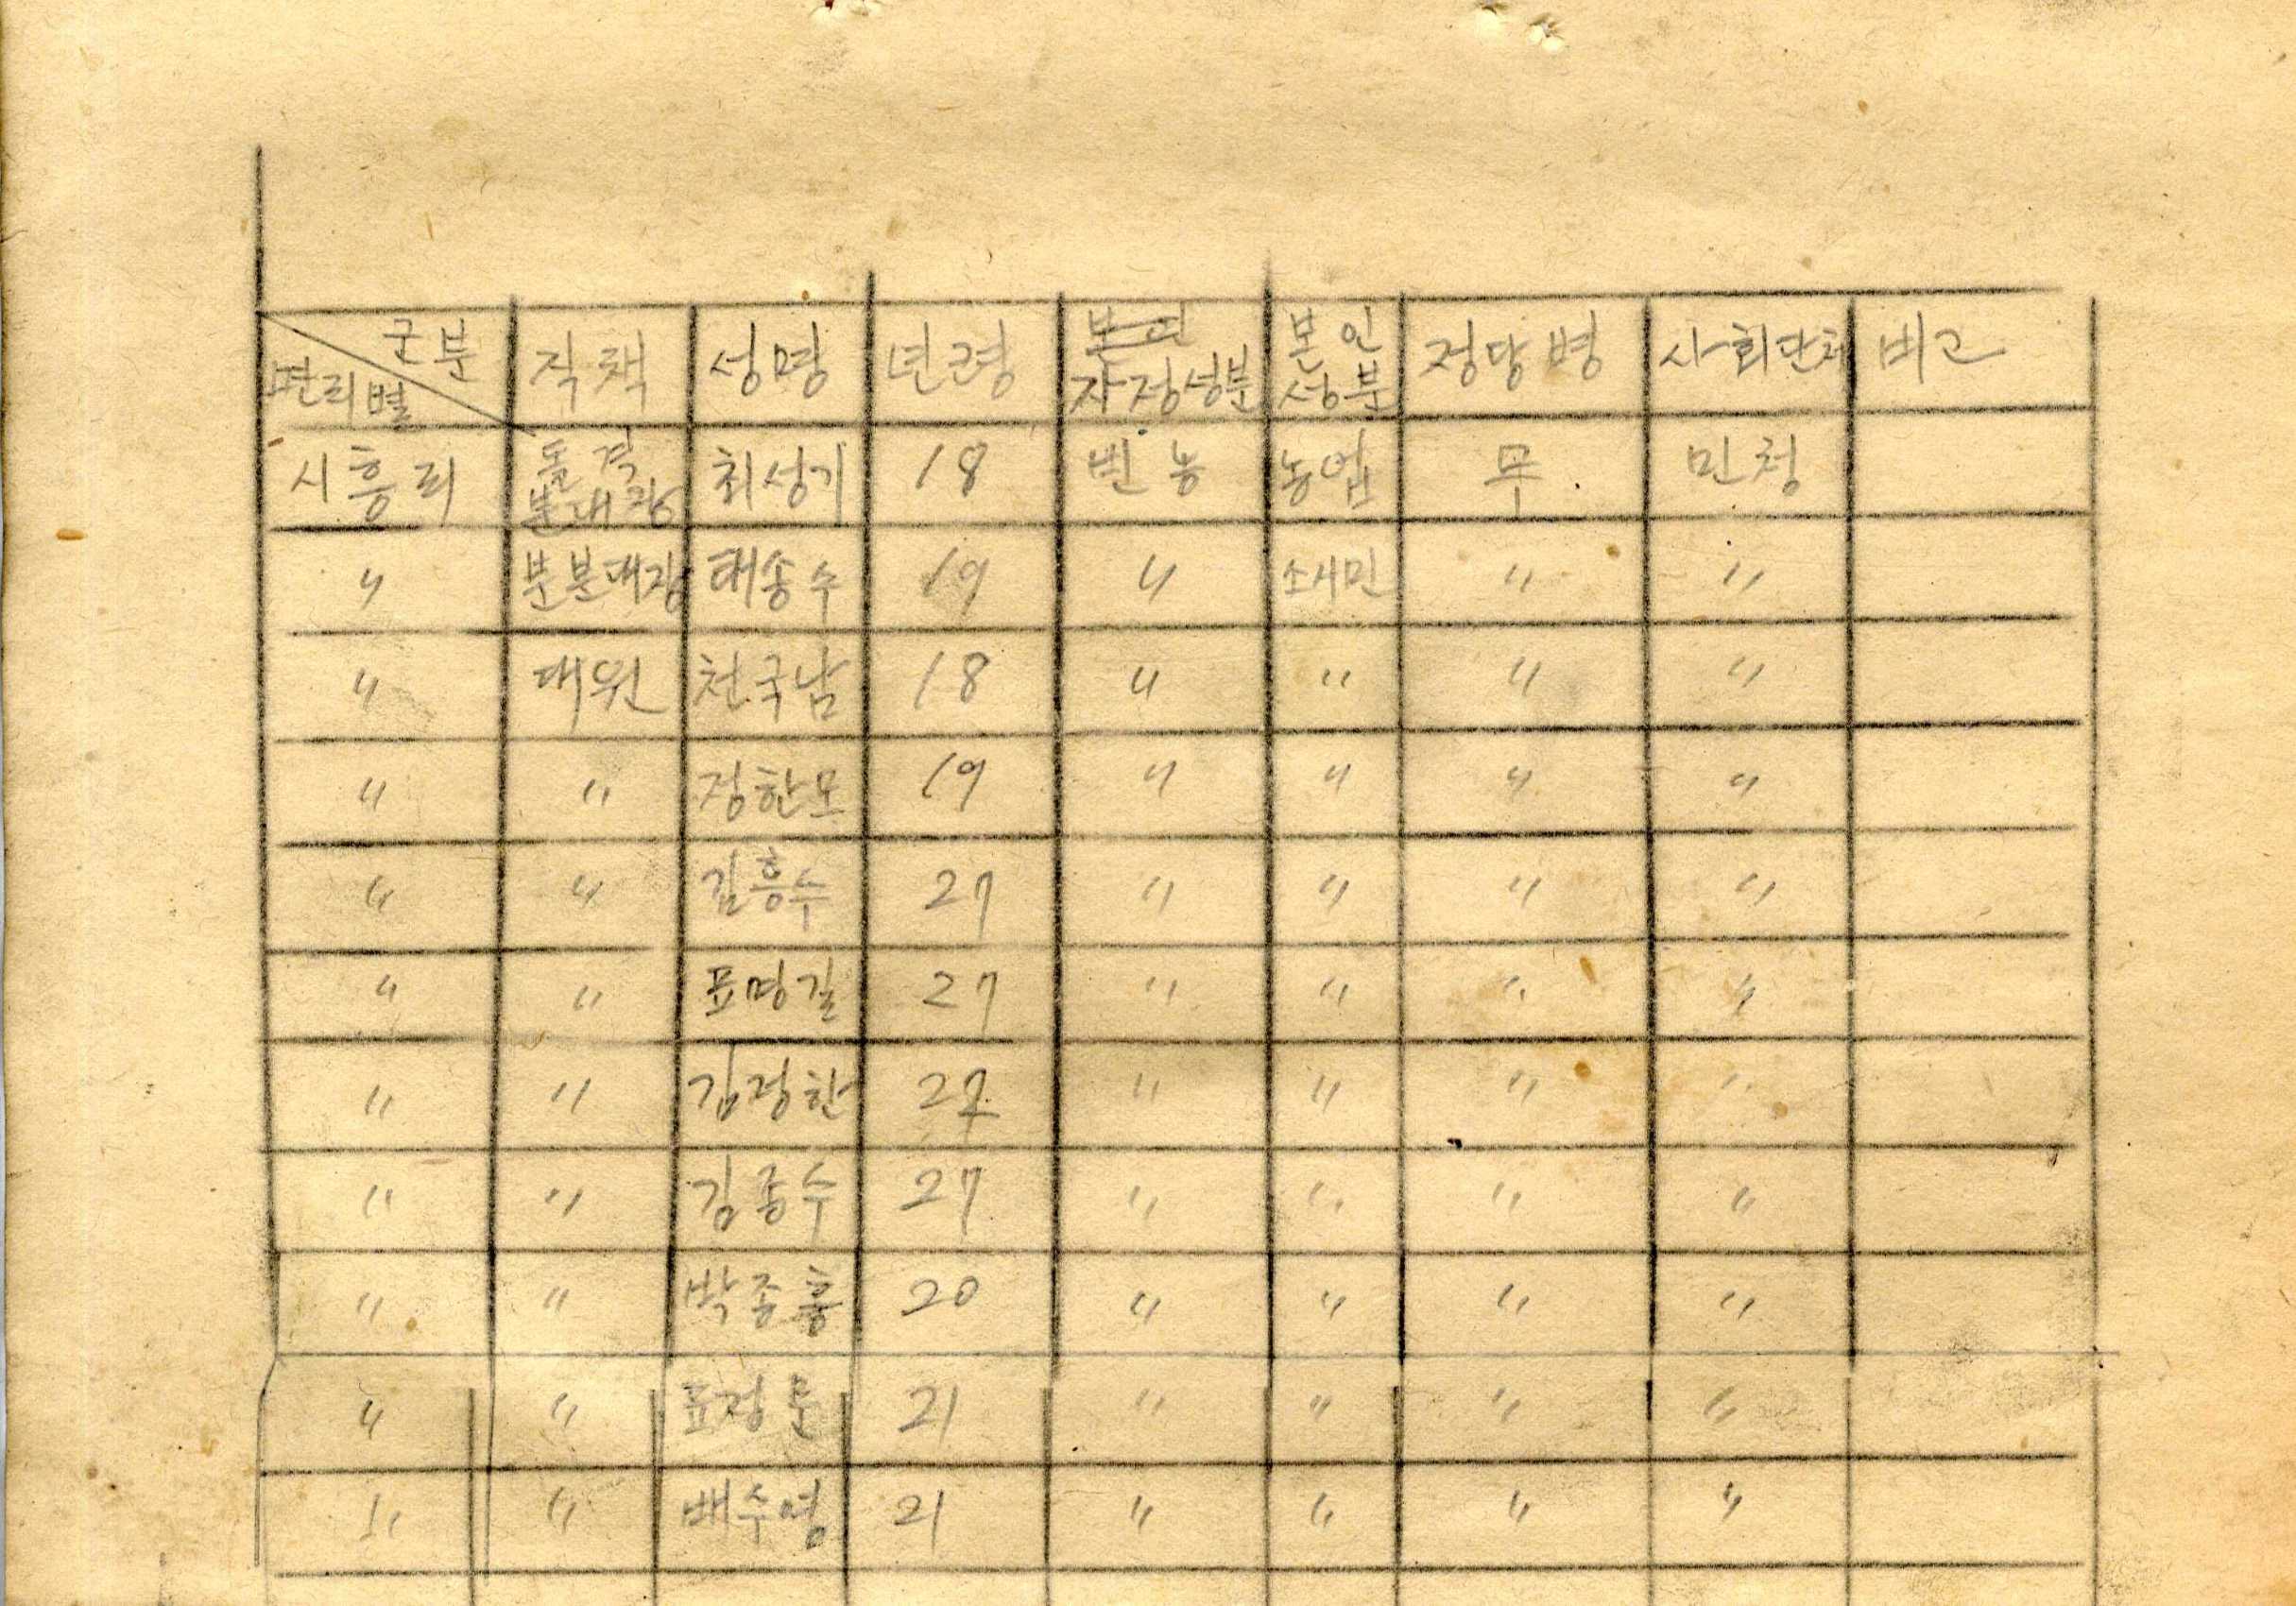 군분 직책 성명 년령 자정성분 본인성분 정당병 사회단체 비고
면리별
시흥리 돌격분대장 최성기 18 빈농 농업 무 민청
〃 분분대장 태송수 19 〃 소시민 〃 〃
〃 대원 천국남 18 〃 〃 〃 〃
〃 〃 정한모 19 〃 〃 〃 〃
〃 〃 김흥수 27 〃 〃 〃 〃
〃 〃 표명길 27 〃 〃 〃 〃
〃 〃 김정한 27 〃 〃 〃 〃
〃 〃 김종수 27 〃 〃 〃 〃
〃 〃 박종흥 20 〃 〃 〃 〃
〃 〃 표정문 21 〃 〃 〃 〃
〃 〃 배수영 21 〃 〃 〃 〃